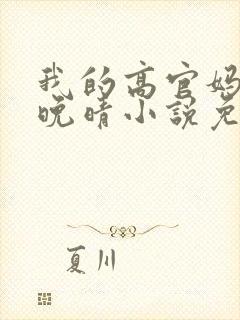 我的高官妈
晚晴小说免
夏川